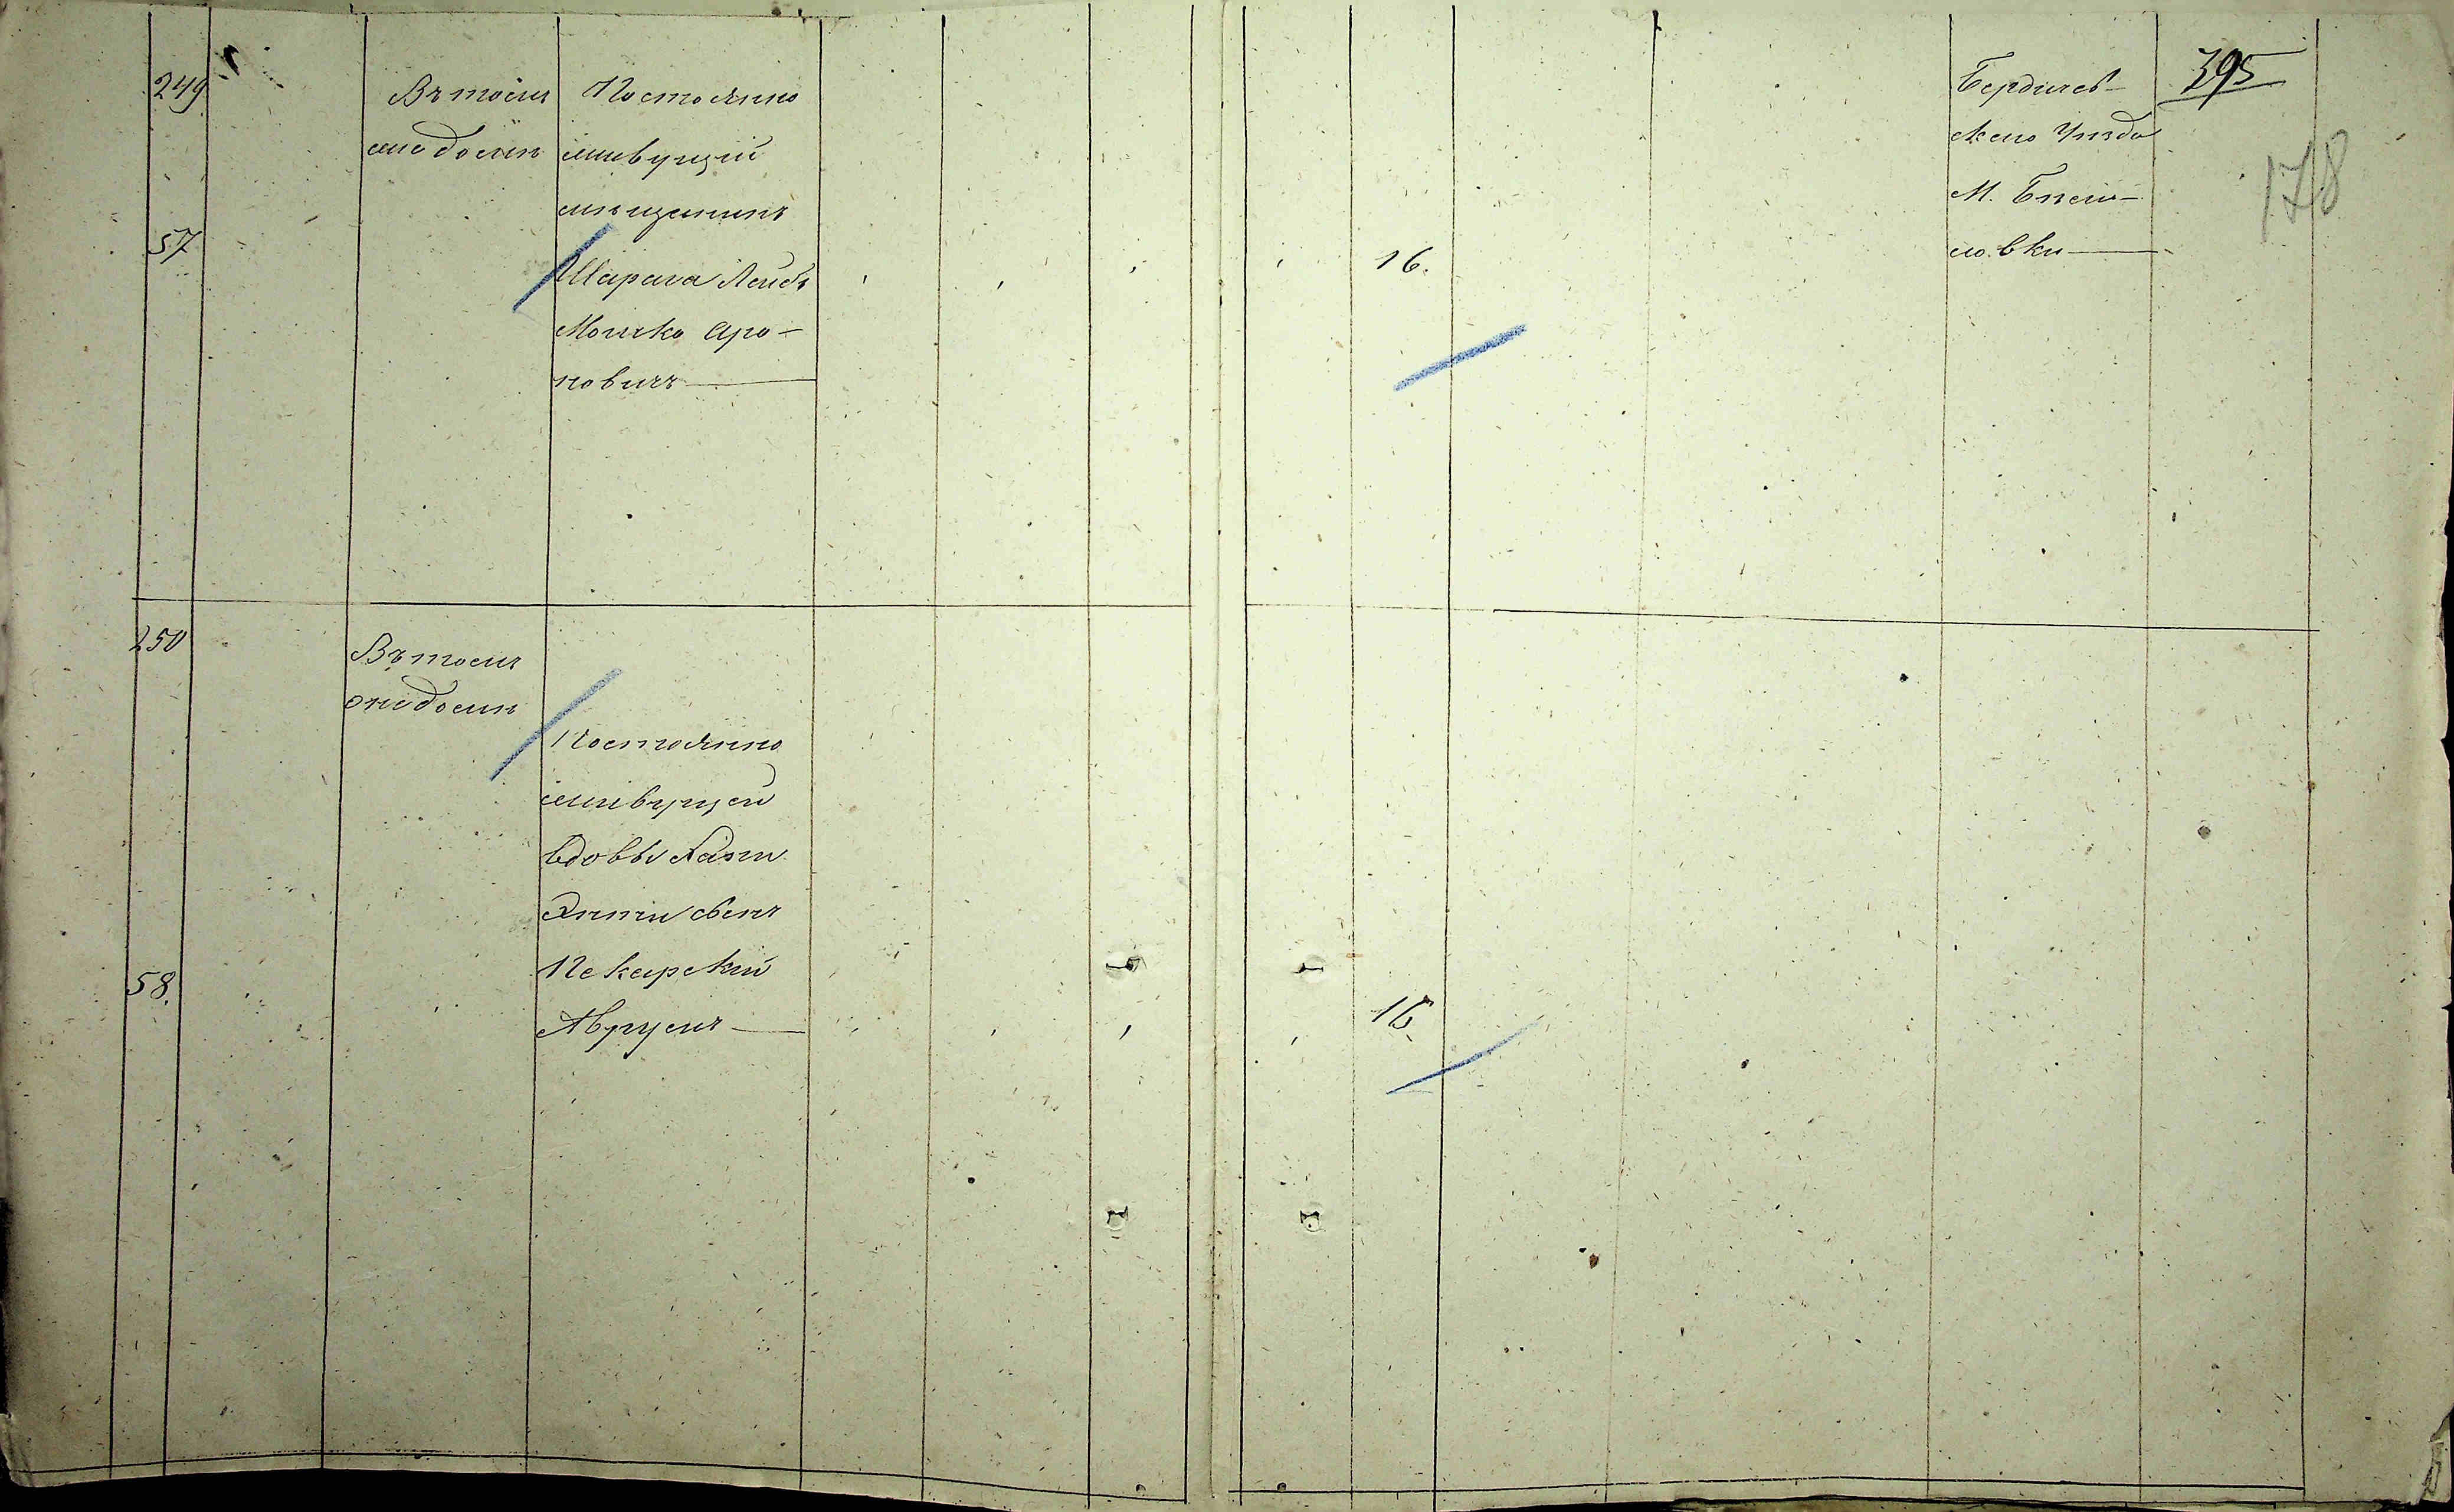 249
Въ томъ
же домѣ
Постоянно
живущій
мѣщанинъ
57
Шарага Лейбъ
Мошко Аро-
новичъ
16.
Бердичев-
скаго Уѣзда
М. Бѣли-
ловки
395
178
250
Въ томъ
же домѣ
Постоянно
живущей
вдовы
сынъ
Пекарскій
58.
Аврумъ
16